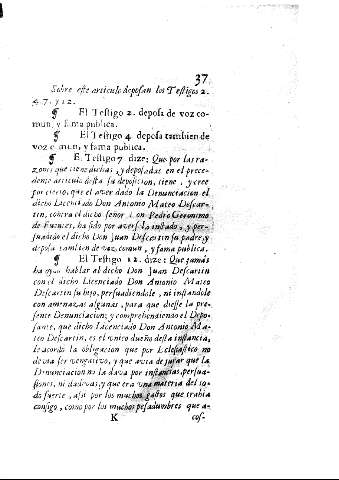 37
Sobre este articulo deposan los Testigos 2.
4. 7. y 12.
¶ El Testigo 2. deposa de voz co-
mun, y fama publica.
¶ El Testigo 4 deposa tambien de
voz comun, y fama publica.
¶ El Testigo 7 dize: Que por las ra-
zones que tiene dichas, y deposadas en el prece-
dente articulo desta su deposicion, tiene, y cree
por cierto, que el aver dado la Denunciacion el
dicho Licenciado Don Antonio Mateo Descar-
tin, contra el dicho señor Don Pedro Geronimo
de Fuentes, ha sido por averse lo instado, y per-
suadido el dicho Don Juan Descartin su padre, y
deposa tambien de voz comun, y fama publica.
¶ El Testigo 12. dize: Que jamàs
ha oydo hablar al dicho Don Juan Descartin
con el dicho Licenciado Don Antonio Mateo
Descartin su hijo, persuadiendole, ni instandole
con amenazas algunas, para que diesse la pre-
sente Denunciacion; y comprehendiendo el Depo-
sante, que dicho Licenciado Don Antonio Ma-
teo Descartin, es el vnico dueño desta instancia,
le acordò la obligacion que por Eclesiastico no
devia ser vengativo, y que avia de jurar que la
Denunciacion ni la dava por instancias, persua-
siones, ni dadivas, y que era vna materia del to-
do fuerte, assi por los muchos gastos que trahia
consigo, como por los muchos pesadumbres que a-
K cos-